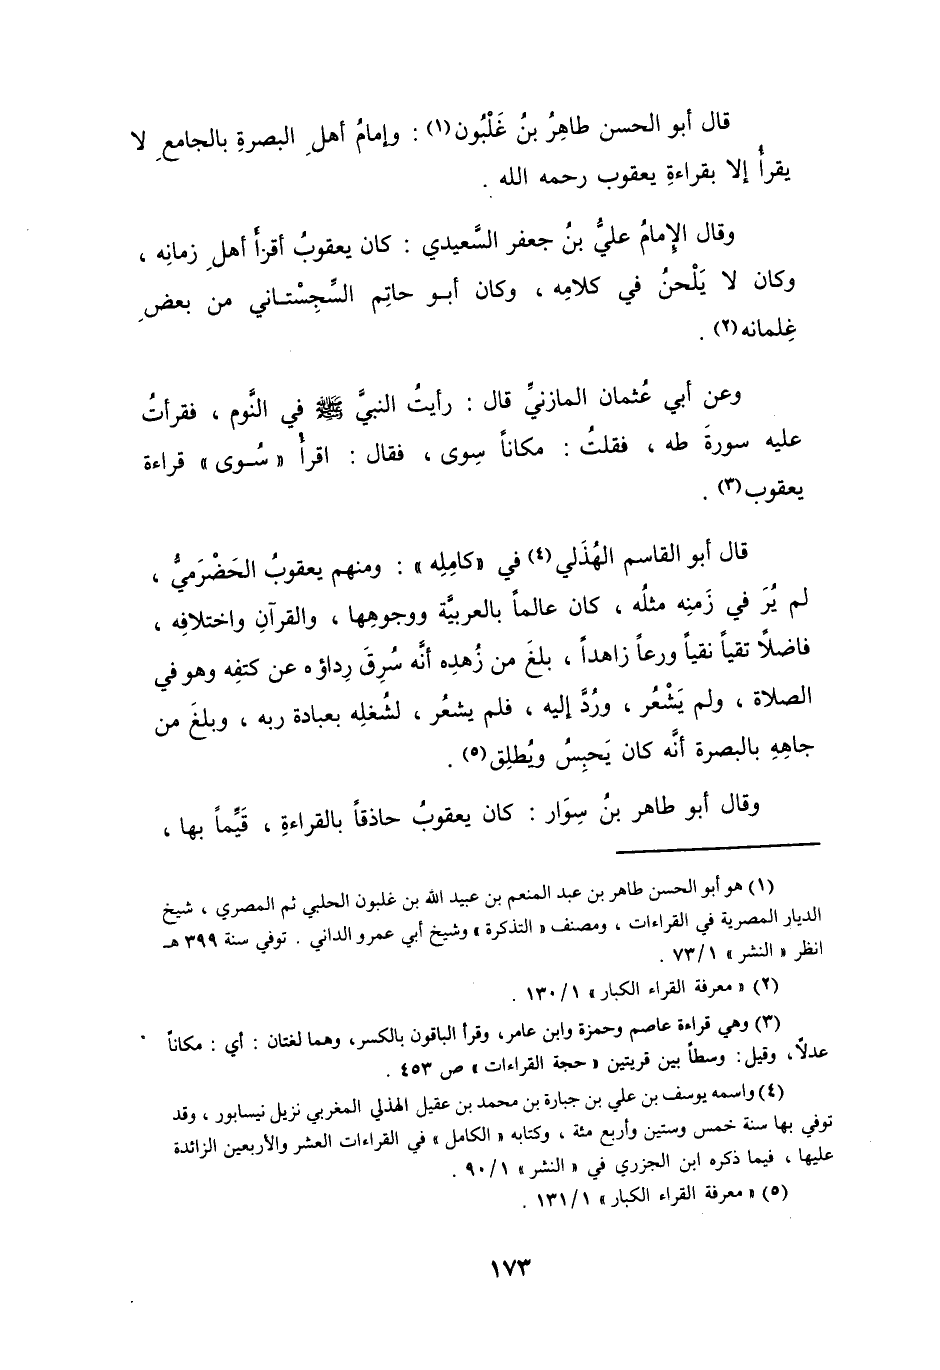 قال أبو الحسن طاهِرُ بنُ غَلْبُون(١) : وإمامُ أهلِ البصرةِ بالجامعِ لا
يقرأُ إلا بقراءةِ يعقوب رحمه الله .
وقال الإِمامُ عليُّ بنُ جعفر السَّعيدي : كان يعقوبُ أقرَأَ أهلِ زمانِه ،
وكان لا يَلْحنُ في كلامِه ، وكان أبو حاتِم السِّجِسْتاني من بعضِ
غِلمانه(٢) .
وعن أبي عُثمان المازنيِّ قال : رأيتُ النبيَّ ﷺ في النَّوم ، فقرأتُ
عليه سورةَ طه ، فقلتُ : مكاناً سِوى ، فقال : اقرأْ « سُوى » قراءة
يعقوب(٣) .
قال أبو القاسم الهُذَلي(٤) في «كامِلِه » : ومنهم يعقوبُ الحَضْرَميُّ ،
لم يُرَ في زَمنِه مثلُه ، كان عالماً بالعربيَّة ووجوهِها ، والقرآنِ واختلافِه ،
فاضلاً تقياً نقياً ورعاً زاهداً ، بلغَ من زُهدِه أنَّه سُرِقَ رِداؤه عن كتفِه وهو في
الصلاة ، ولم يَشْعُر ، ورُدَّ إليه ، فلم يشعُر ، لشُغلِه بعبادة ربه ، وبلغَ من
جاهِهِ بالبصرة أنَّه كان يَحبِسُ ويُطلِق(٥) .
وقال أبو طاهر بنُ سِوَار : كان يعقوبُ حاذقاً بالقراءةِ ، قَيِّماً بها ،
(١) هو أبو الحسن طاهر بن عبد المنعم بن عبيد الله بن غلبون الحلبي ثم المصري ، شيخ
الديار المصرية في القراءات ، ومصنف « التذكرة » وشيخ أبي عمرو الداني . توفي سنة ٣٩٩ هـ
انظر « النشر » ٧٣/١ .
(٢) « معرفة القراء الكبار » ١٣٠/١ .
(٣) وهي قراءة عاصم وحمزة وابن عامر، وقرأ الباقون بالكسر، وهما لغتان : أي : مكاناً
عدلاً، وقيل: وسطاً بين قريتين « حجة القراءات » ص ٤٥٣ .
(٤) واسمه يوسف بن علي بن جبارة بن محمد بن عقيل الهذلي المغربي نزيل نيسابور ، وقد
توفي بها سنة خمس وستين وأربع مئة ، وكتابه « الكامل » في القراءات العشر والأربعين الزائدة
عليها ، فيما ذكره ابن الجزري في « النشر » ٩٠/١ .
(٥) « معرفة القراء الكبار » ١٣١/١ .
١٧٣